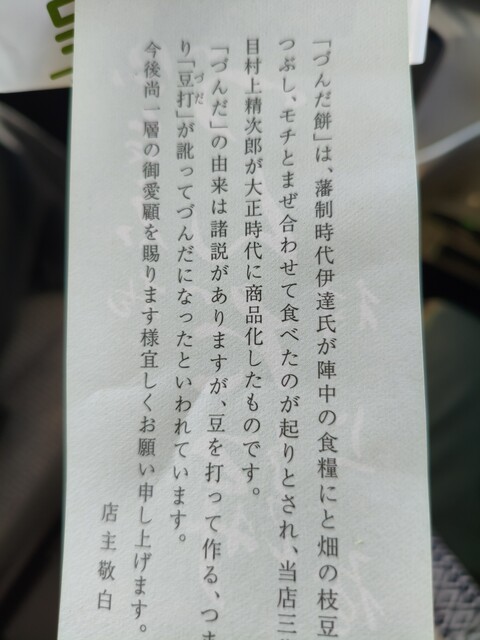 「づんだ餅」は、藩制時代伊達氏が陣中の食糧にと畑の枝豆
つぶし、モチとまぜ合わせて食べたのが起りとされ、当店三
目村上精次郎が大正時代に商品化したものです。
「づんだ」の由来は諸説がありますが、豆を打って作る、つま
り「豆打」が訛ってづんだになったといわれています。
づだ
今後尚一層の御愛顧を賜ります様宜しくお願い申し上げます。
店主敬白